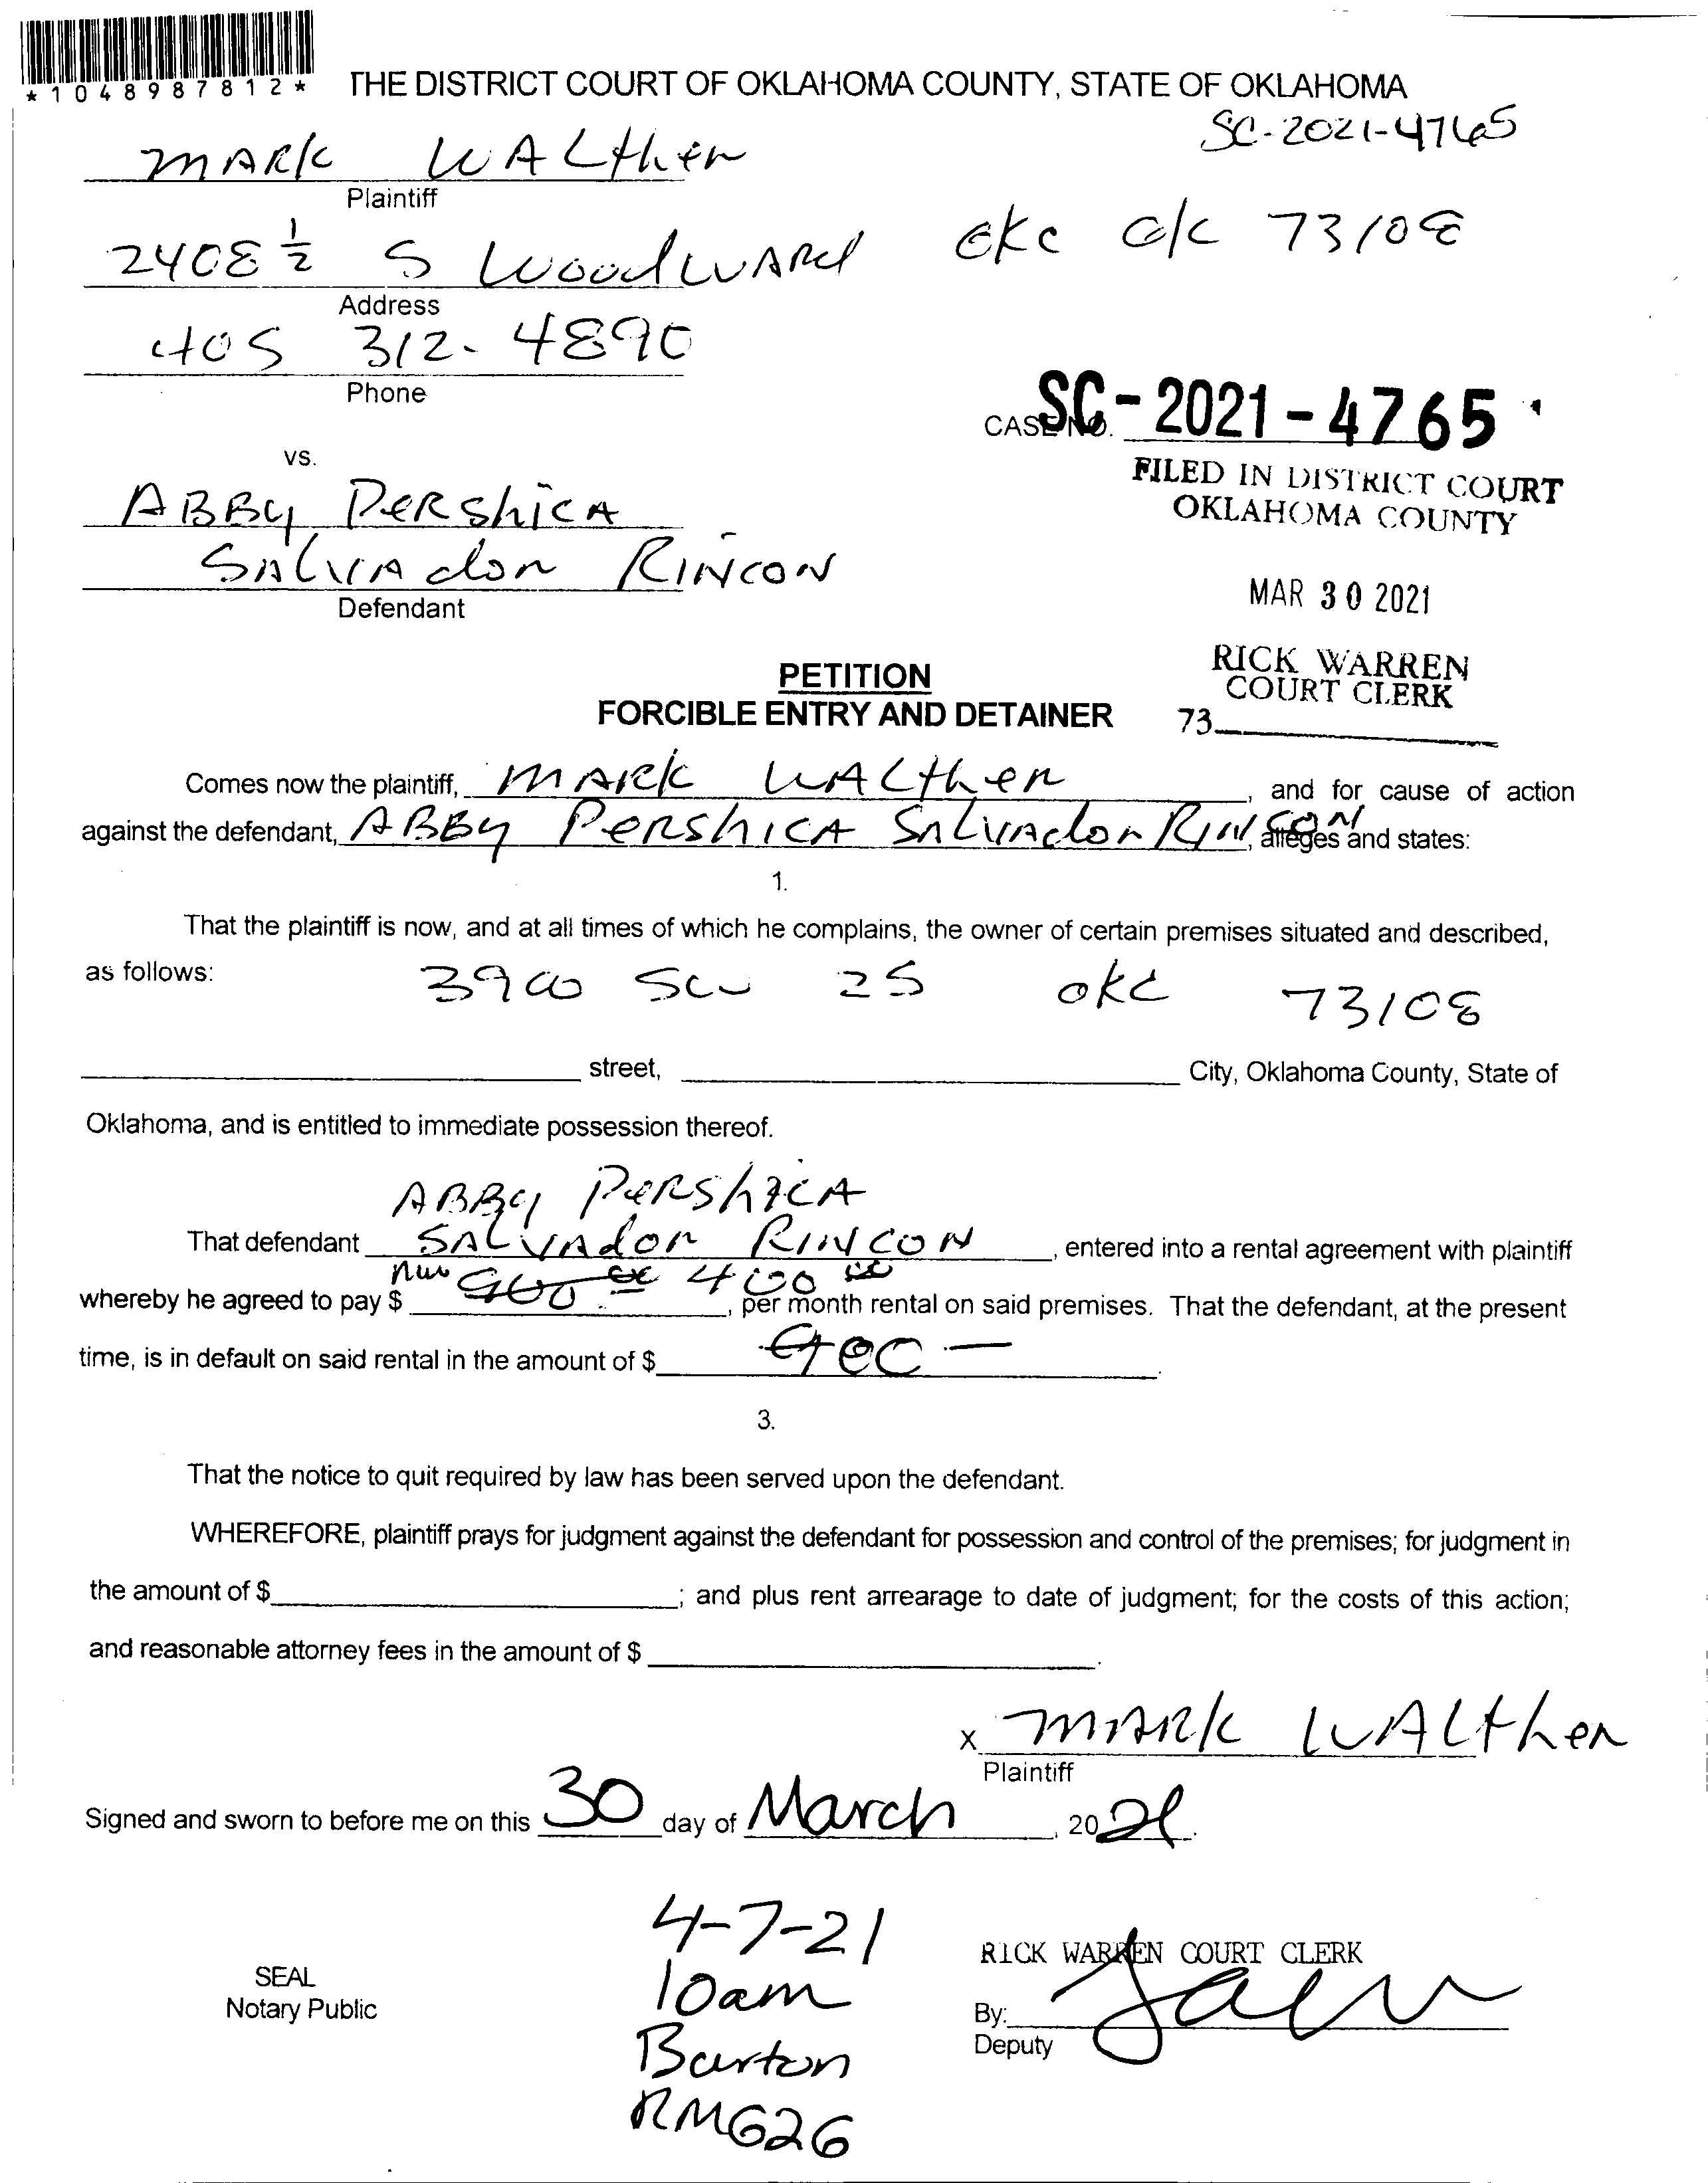 *1048987812*
THE DISTRICT COURT OF OKLAHOMA COUNTY, STATE OF OKLAHOMA
SC-2021-4765
MARK WALther
Plaintiff
2408 ½ S WoodWARd OKC OK 73108
Address
405 312-4890
Phone
CASE NO. SC-2021-4765
vs.
FILED IN DISTRICT COURT
OKLAHOMA COUNTY
ABBy PERShICA
SALVAdor RINCON
Defendant
MAR 30 2021
RICK WARREN
COURT CLERK
73
PETITION
FORCIBLE ENTRY AND DETAINER
Comes now the plaintiff, MARK WALther, and for cause of action
against the defendant, ABBy PERShICA SALVAdor RINCON, alleges and states:
1.
That the plaintiff is now, and at all times of which he complains, the owner of certain premises situated and described,
as follows: 3900 SW 25 OKC 73108
street, City, Oklahoma County, State of
Oklahoma, and is entitled to immediate possession thereof.
ABBy PERShICA
That defendant SALVAdor RINCON, entered into a rental agreement with plaintiff
whereby he agreed to pay $ mw 900 00 400 00, per month rental on said premises. That the defendant, at the present
time, is in default on said rental in the amount of $ 900 —.
3.
That the notice to quit required by law has been served upon the defendant.
WHEREFORE, plaintiff prays for judgment against the defendant for possession and control of the premises; for judgment in
the amount of $; and plus rent arrearage to date of judgment; for the costs of this action;
and reasonable attorney fees in the amount of $.
X MARK WALther
Plaintiff
Signed and sworn to before me on this 30 day of March, 2021.
4-7-21
10am
Barton
RM626
SEAL
Notary Public
RICK WARREN COURT CLERK
By:
Deputy